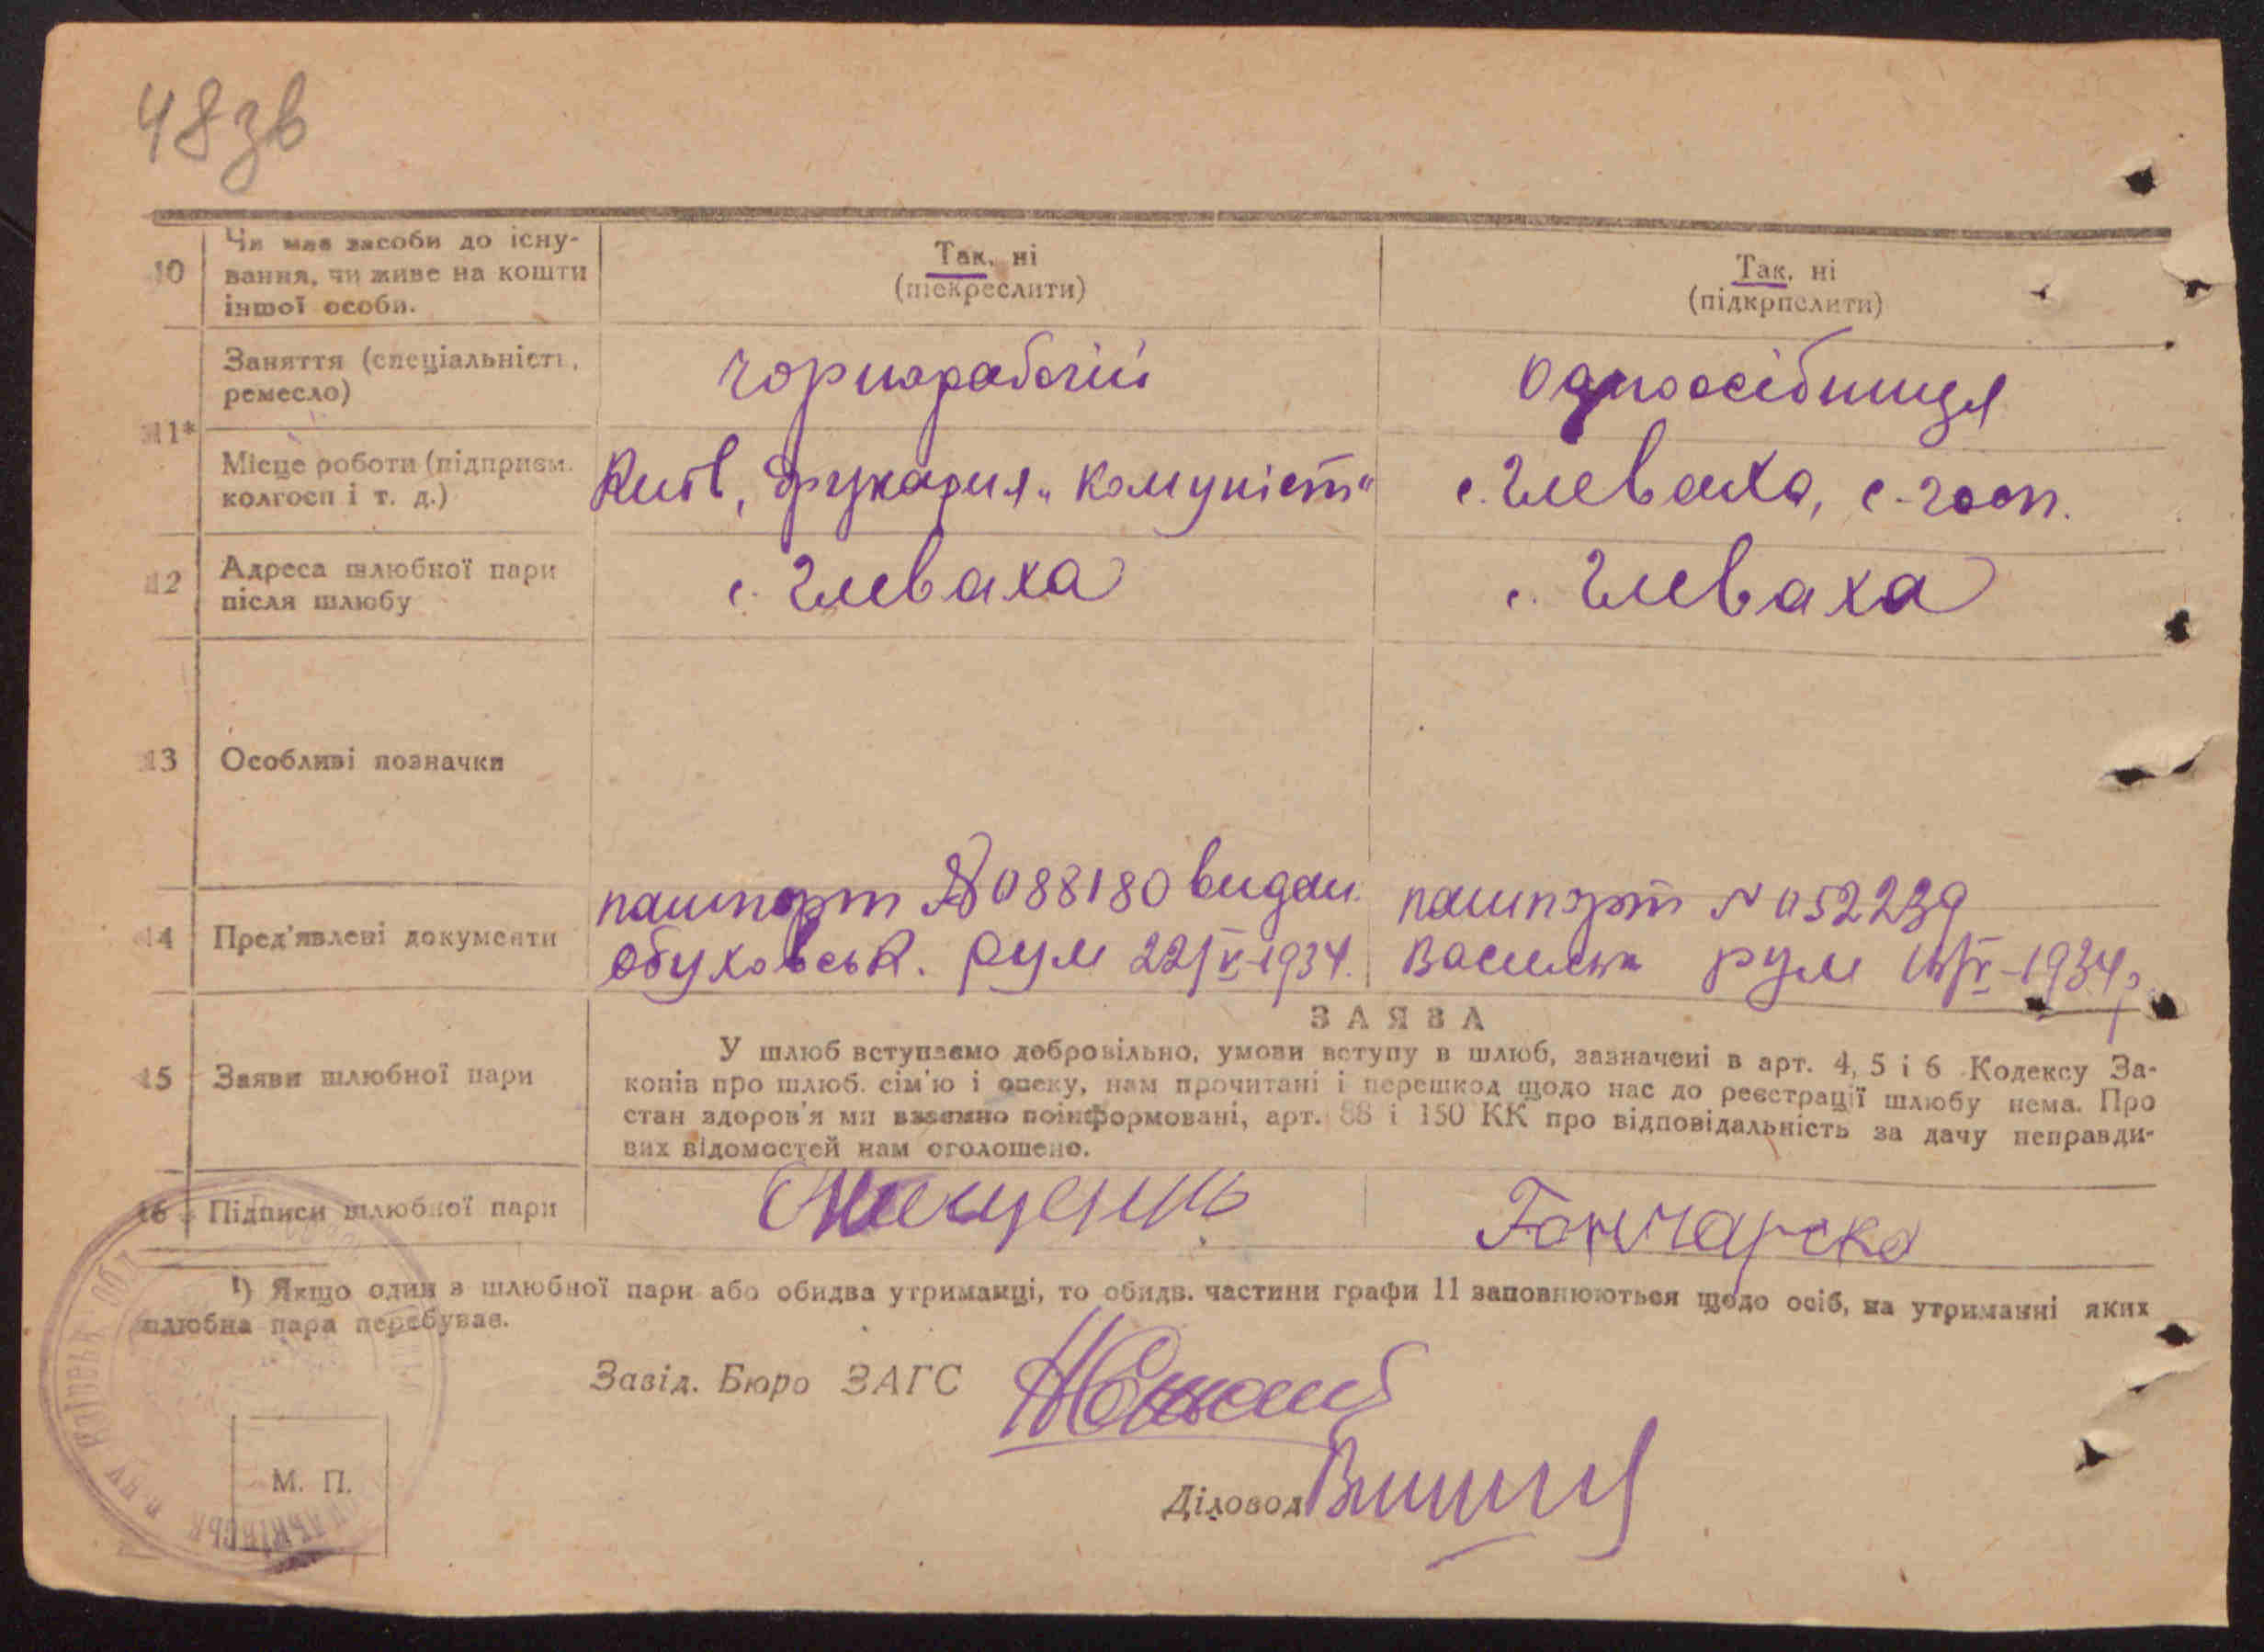 48зв
10
Чи має засоби до існу-
вання, чи живе на кошти
іншої особи.
Так, ні
(пієкреслити)
Так, ні
(підкрпслити)
11*
Заняття (спеціальність,
ремесло)
чорнорабочій
одноосібниця
Місце роботи (підприєм.
колгосп і т. д.)
Київ, друкарня „Комуніст"
с. Глеваха, с-госп.
12
Адреса шлюбної пари
після шлюбу
с. Глеваха
с. Глеваха
13
Особливі позначки
14
Пред'явлені документи
пашпорт № 088180 видан.
Обуховськ. рум 22/V-1934.
пашпорт № 052239
рум -1934 р
15
Заяви шлюбної пари
ЗАЯВА
У шлюб вступаємо добровільно, умови вступу в шлюб, зазначені в арт. 4, 5 і 6 Кодексу За-
конів про шлюб. сім'ю і опеку, нам прочитані і перешкод щодо нас до реєстрації шлюбу нема. Про
стан здоров'я ми взаємно поінформовані, арт. 88 і 150 КК про відповідальність за дачу неправди-
вих відомостей нам оголошено.
16
Підписи шлюбної пари
Гончарска
¹) Якщо один з шлюбної пари або обидва утриманці, то обидв. частини графи 11 заповнюються щодо осіб, на утриманні яких
шлюбна пара перебуває.
Завід. Бюро ЗАГС
Діловод
М. П.